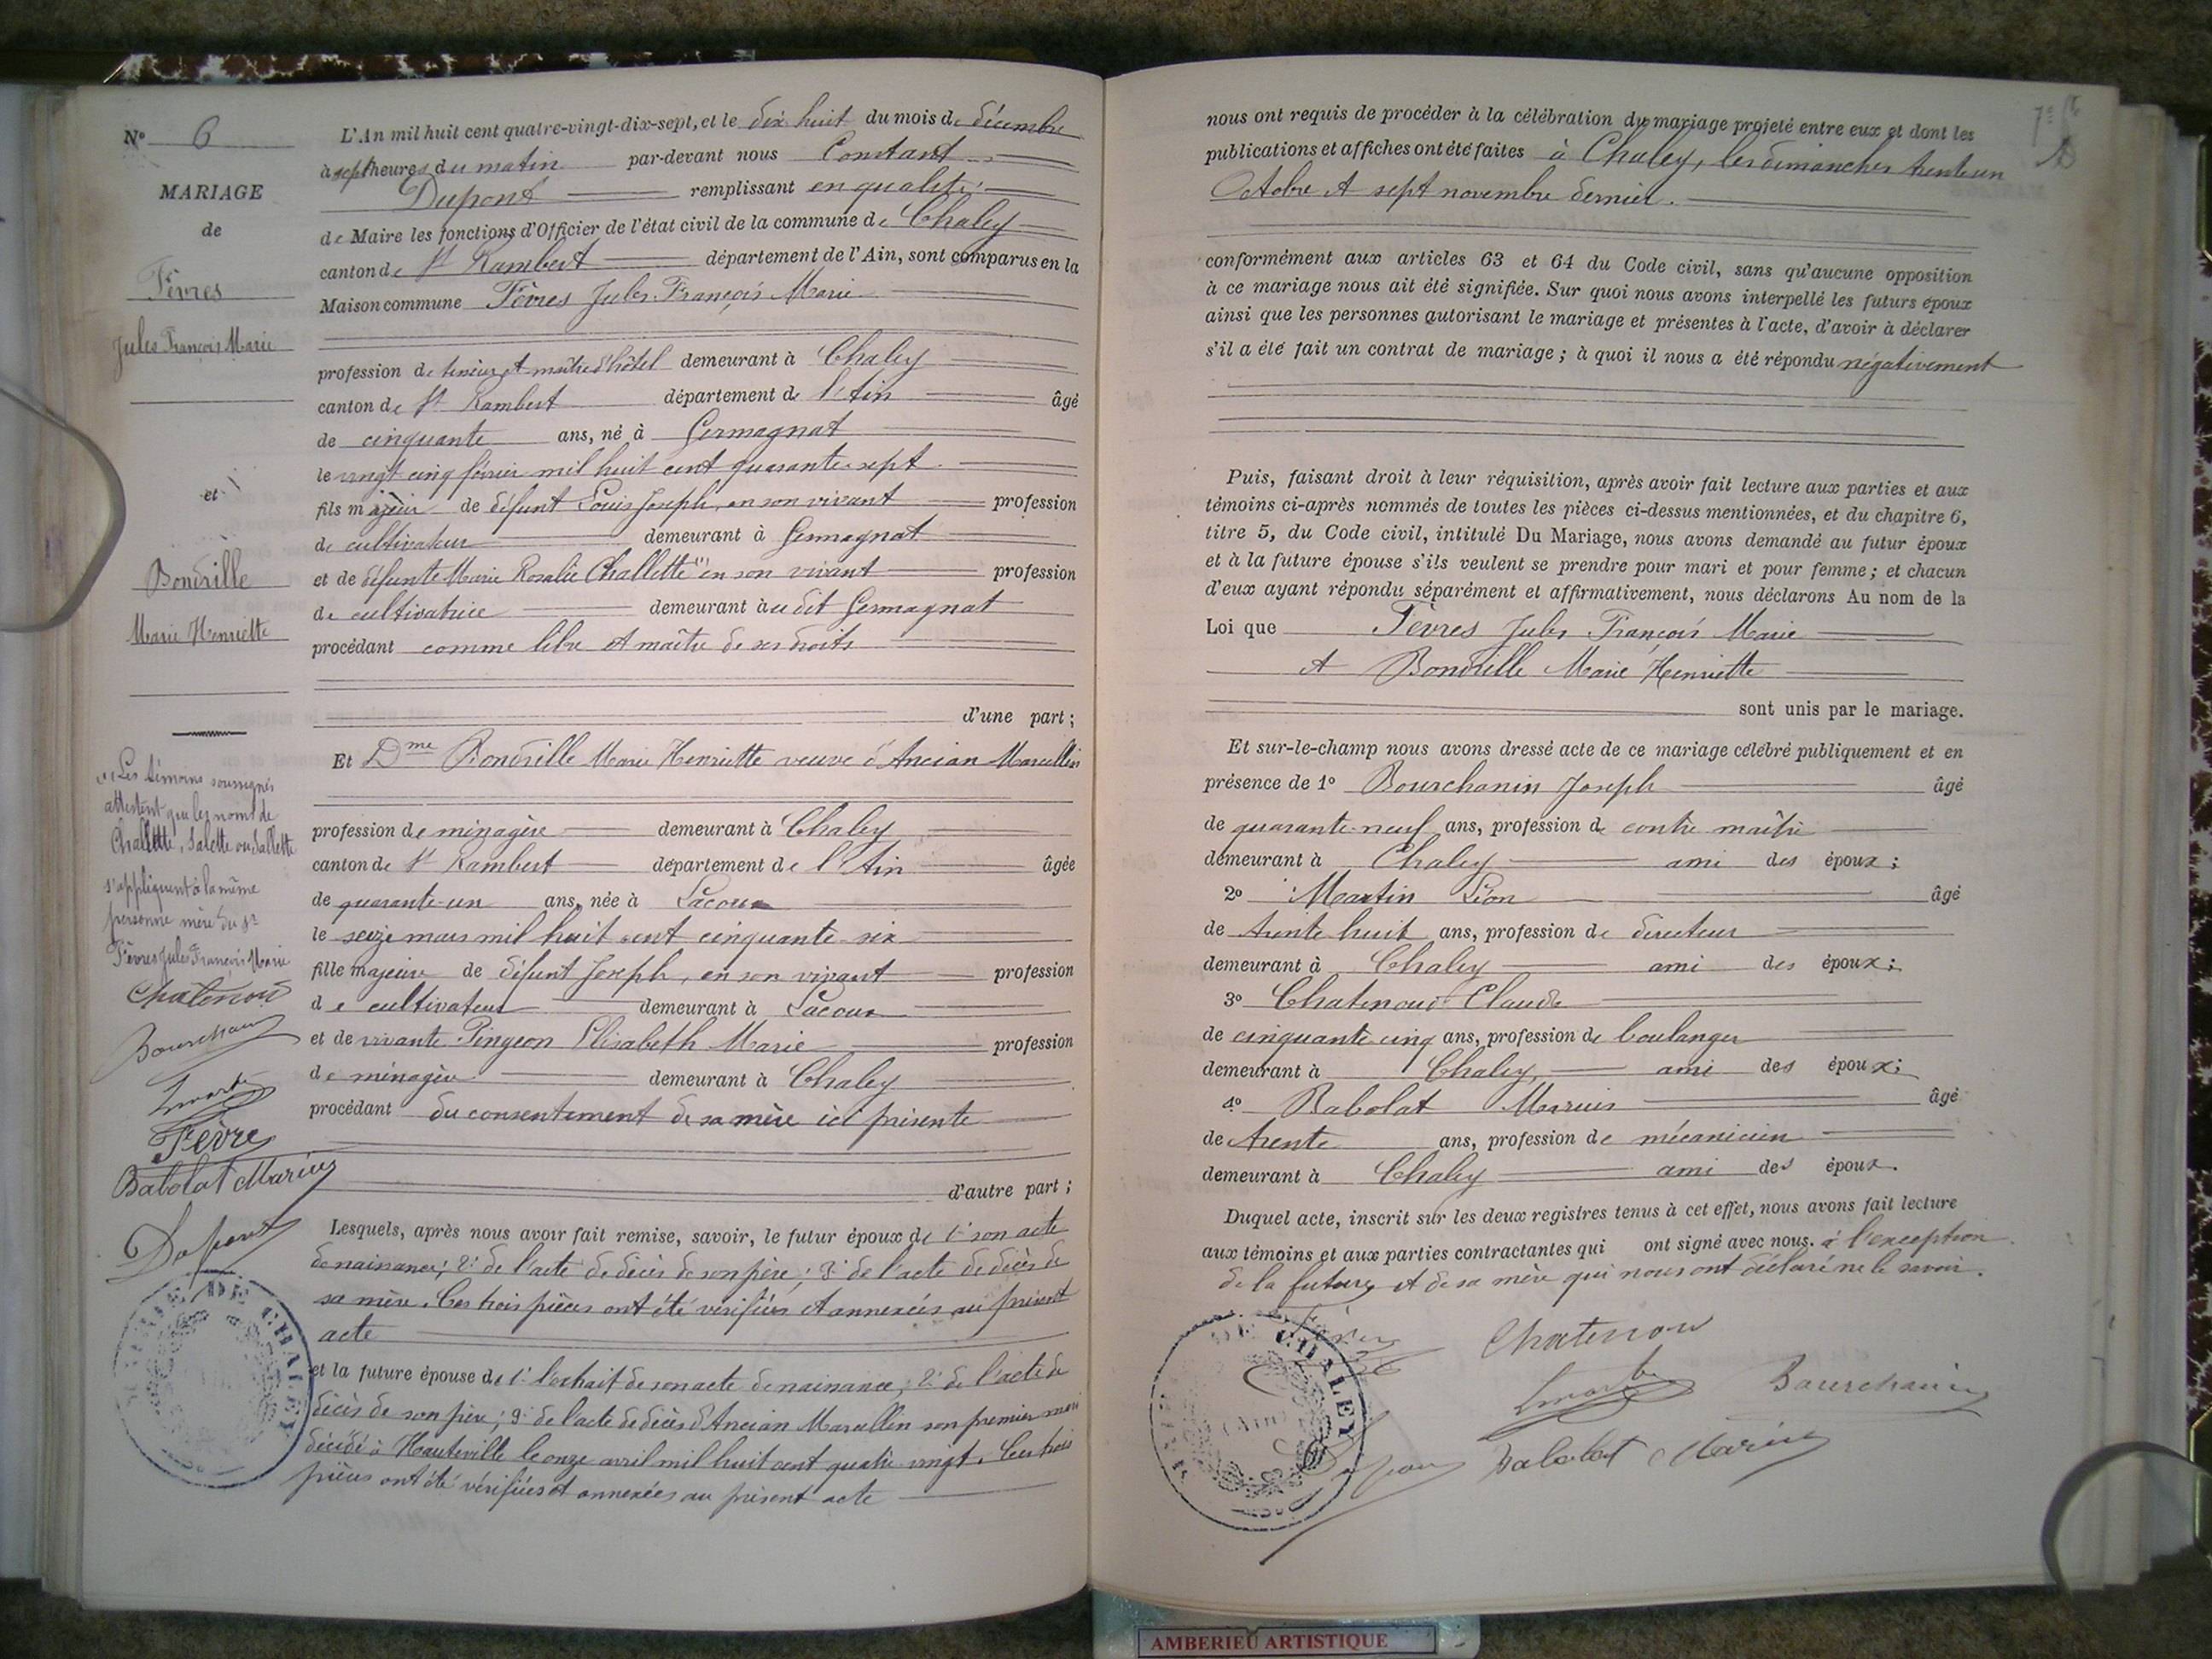 N° 6
MARIAGE
de
Fèvres
Jules François Marie
et
Bondrille
Marie Henriette
(1) Les témoins soussignés
attestent que les noms de
Challette, Salette ou Sallette
s'appliquent à la même
personne mère du Sr
Fèvres Jules François Marie
Chatenoud
Bourchanin
Martin
Fèvre
Babolat Marius
Dupont
MAIRIE DE CHALEY
L'An mil huit cent quatre-vingt-dix-sept, et le dix huit du mois de décembre
à sept heures du matin par-devant nous Constant
Dupont remplissant en qualité
de Maire les fonctions d'Officier de l'état civil de la commune de Chaley
canton de St Rambert département de l'Ain, sont comparus en la
Maison commune Fèvres Jules François Marie
profession de teneur et maître d'hôtel demeurant à Chaley
canton de St Rambert département de l'Ain âgé
de cinquante ans, né à Germagnat
le vingt cinq février mil huit cent quarante-sept
fils majeur de défunt Louis Joseph, en son vivant profession
de cultivateur demeurant à Germagnat
et de défunte Marie Rosalie Challette (1) en son vivant profession
de cultivatrice demeurant à udit Germagnat
procédant comme libre et maître de ses droits
d'une part ;
Et Dme Bondrille Marie Henriette veuve d'Ancian Marcellin
profession de ménagère demeurant à Chaley
canton de St Rambert département de l'Ain âgée
de quarante-un ans, née à Lacoux
le seize mars mil huit cent cinquante-six
fille majeure de défunt Joseph, en son vivant profession
de cultivateur demeurant à Lacoux
et de vivante Pingeon Elisabeth Marie profession
de ménagère demeurant à Chaley
procédant du consentement de sa mère ici présente
d'autre part ;
Lesquels, après nous avoir fait remise, savoir, le futur époux de 1° son acte
de naissance ; 2° de l'acte de décès de son père ; 3° de l'acte de décès de
sa mère. Ces trois pièces ont été vérifiées et annexées au présent
acte
et la future épouse de 1° l'extrait de son acte de naissance ; 2° de l'acte de
décès de son père ; 3° de l'acte de décès d'Ancian Marcellin son premier mari
décédé à Hauteville le onze avril mil huit cent quatre vingt. Ces trois
pièces ont été vérifiées et annexées au présent acte
nous ont requis de procéder à la célébration du mariage projeté entre eux et dont les
publications et affiches ont été faites à Chaley, les dimanches trente un
Octobre et sept novembre dernier.
conformément aux articles 63 et 64 du Code civil, sans qu'aucune opposition
à ce mariage nous ait été signifiée. Sur quoi nous avons interpellé les futurs époux
ainsi que les personnes autorisant le mariage et présentes à l'acte, d'avoir à déclarer
s'il a été fait un contrat de mariage ; à quoi il nous a été répondu négativement
Puis, faisant droit à leur réquisition, après avoir fait lecture aux parties et aux
témoins ci-après nommés de toutes les pièces ci-dessus mentionnées, et du chapitre 6,
titre 5, du Code civil, intitulé Du Mariage, nous avons demandé au futur époux
et à la future épouse s'ils veulent se prendre pour mari et pour femme ; et chacun
d'eux ayant répondu séparément et affirmativement, nous déclarons Au nom de la
Loi que Fèvres Jules François Marie
et Bondrille Marie Henriette
sont unis par le mariage.
Et sur-le-champ nous avons dressé acte de ce mariage célébré publiquement et en
présence de 1° Bourchanin Joseph âgé
de quarante-neuf ans, profession de contre maître
demeurant à Chaley ami des époux ;
2° Martin Léon âgé
de trente huit ans, profession de directeur
demeurant à Chaley ami des époux ;
3° Chatenoud Claude
de cinquante cinq ans, profession de boulanger
demeurant à Chaley, ami des époux ;
4° Babolat Marius âgé
de trente ans, profession de mécanicien
demeurant à Chaley ami des époux.
Duquel acte, inscrit sur les deux registres tenus à cet effet, nous avons fait lecture
aux témoins et aux parties contractantes qui ont signé avec nous. à l'exception
de la future et de sa mère qui nous ont déclaré ne le savoir.
Fèvres
Chatenoud
Martin
Bourchanin
Dupont
Babolat Marius
DE CHALEY
(Ain)
AMBERIEU ARTISTIQUE